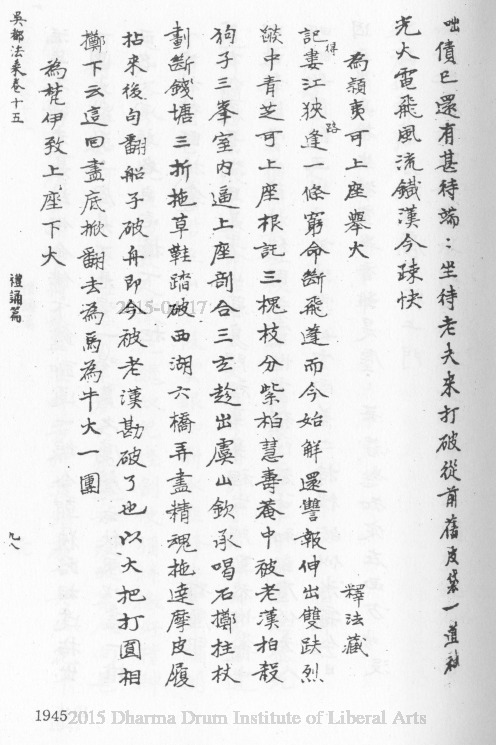 咄債已還有甚待端〻坐待老夫來打破從前舊皮袋一道神
光火電飛風流鐵漢今疎快
為頴夷可上座舉火
釋法藏
記得婁江狹路逢一條窮命斷飛蓬而今始解還讐報伸出雙趺烈
燄中青芝可上座根託三槐枝分紫柏慧壽菴中被老漢拍殺
狗子三峯室內逼上座剖合三玄趁出虞山欽承喝石擲拄杖
劃斷錢塘三折拖草鞋踏破西湖六橋弄盡精魂拖達摩皮履
拈來後句翻船子破舟即今被老漢勘破了也以火把打圓相
擲下云這回盡底掀翻去為馬為牛火一團
為梵伊致上座下火
吳都法乘卷十五
禮誦篇
九八
1945
2015 Dharma Drum Institute of Liberal Arts